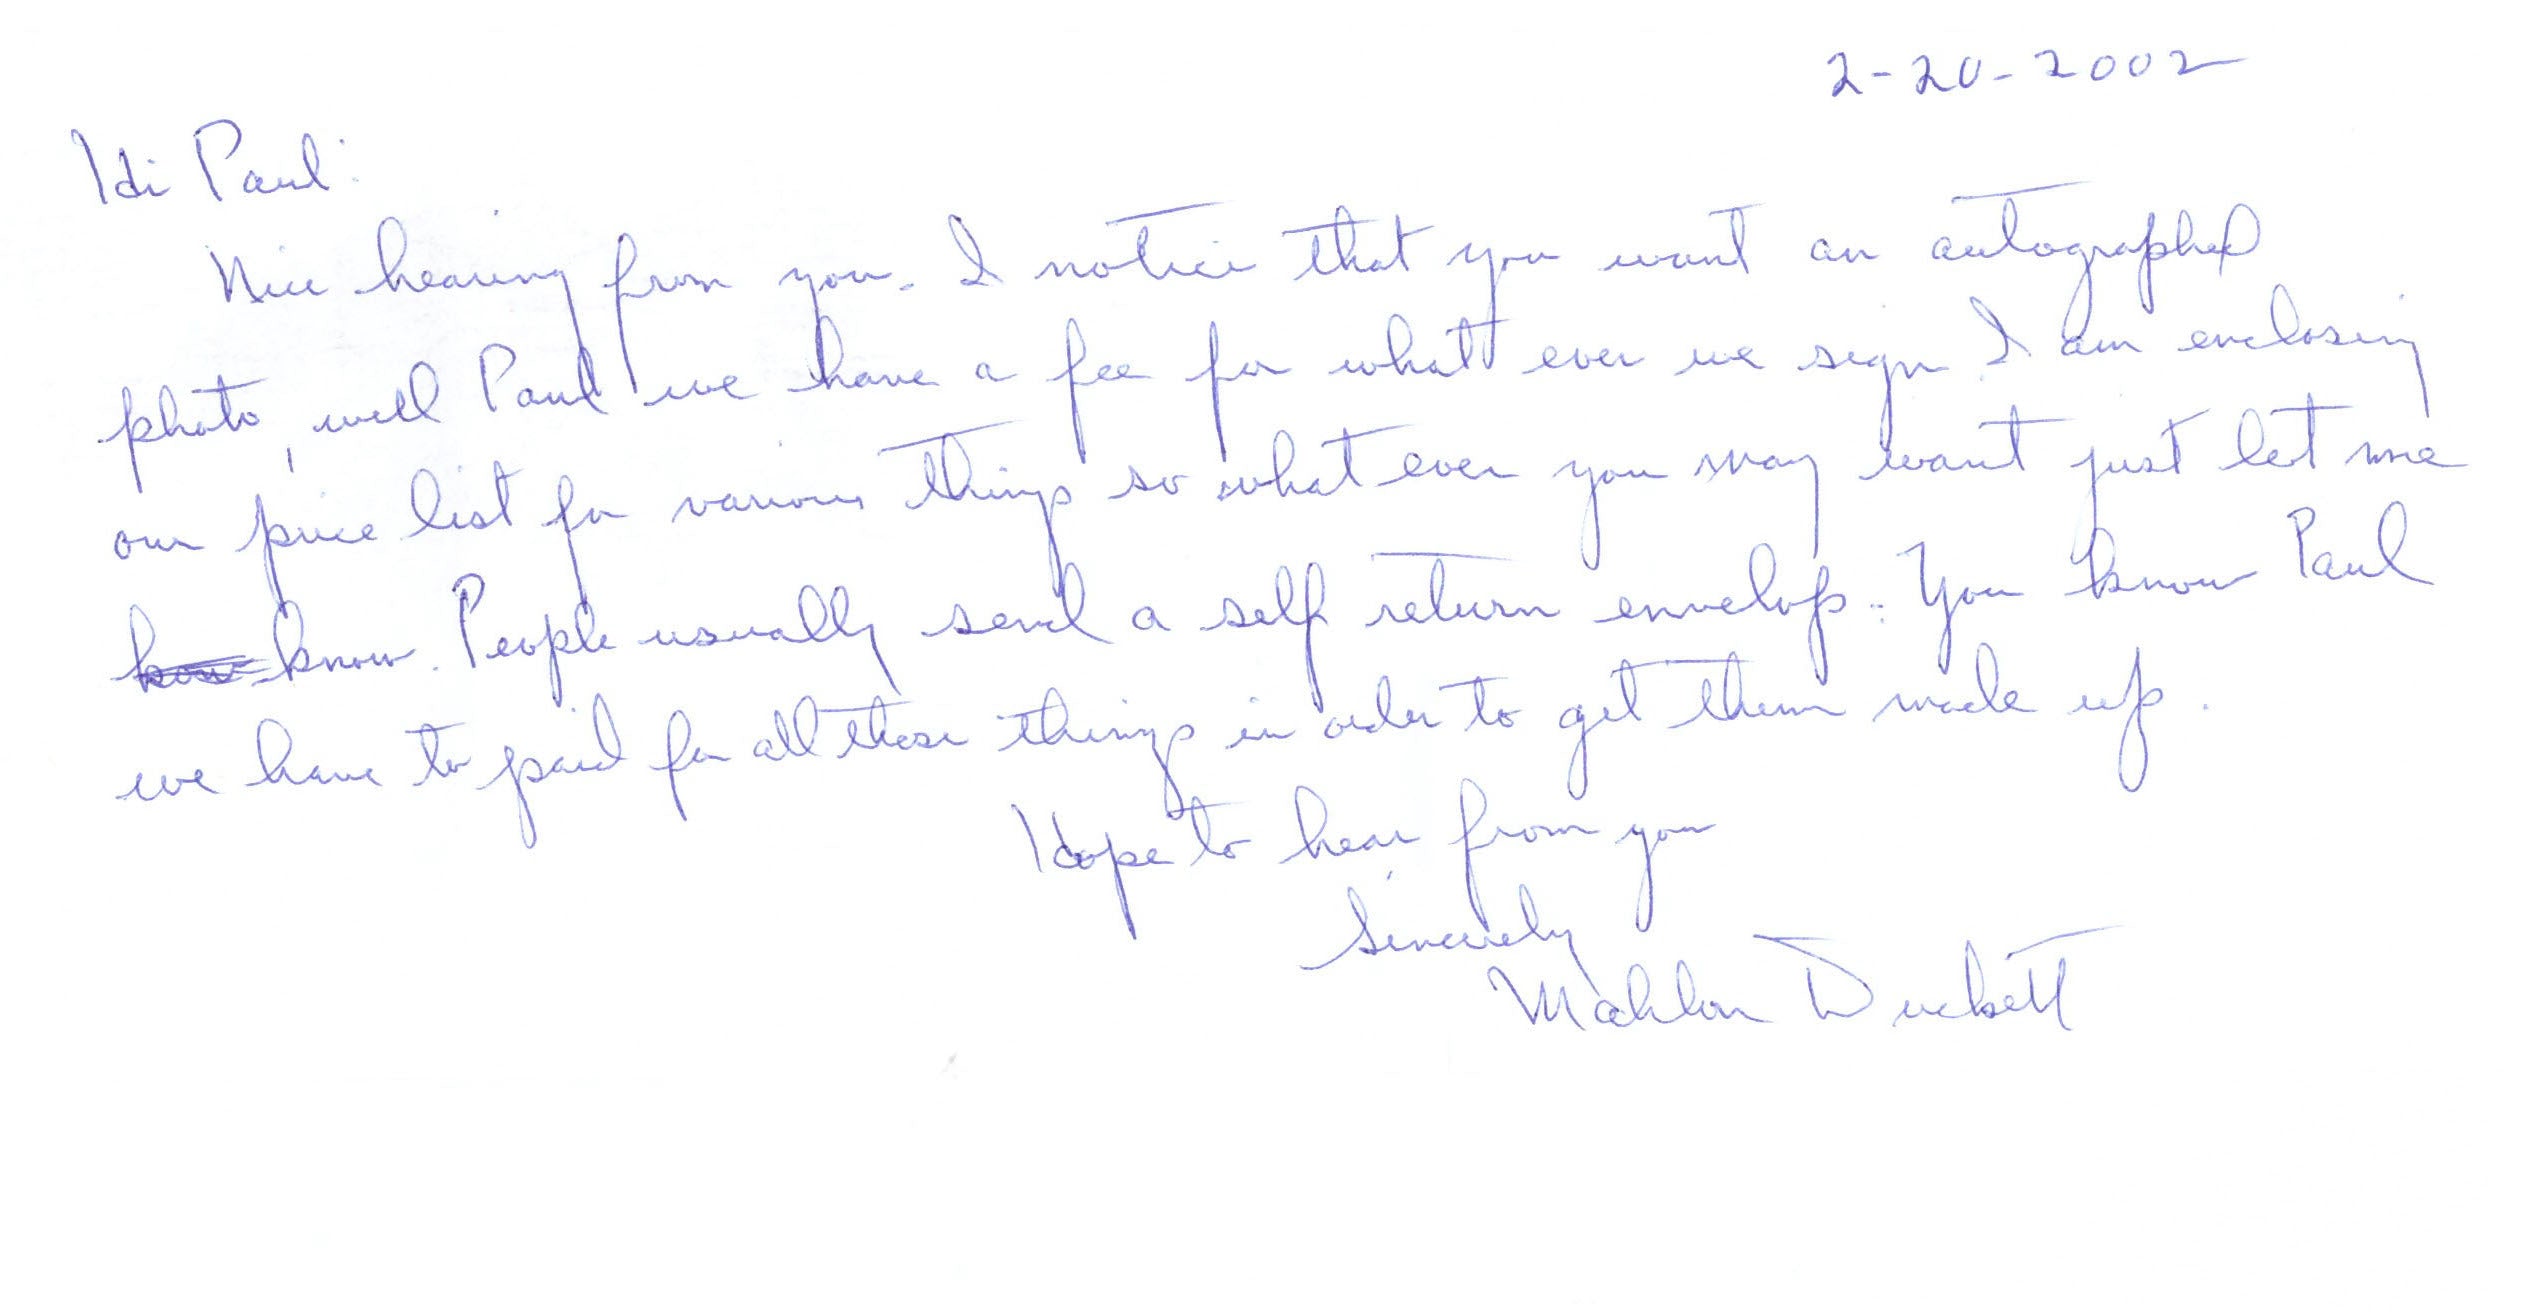 2-20-2002
Hi Paul:
Nice hearing from you. I notice that you want an autographed
photo, well Paul we have a fee for what ever we sign. I am enclosing
our price list for various things so what ever you may want just let me
know know. People usually send a self return envelop. You know Paul
we have to paid for all these things in order to get them made up.
Hope to hear from you
Sincerely
Mahlon Duckett